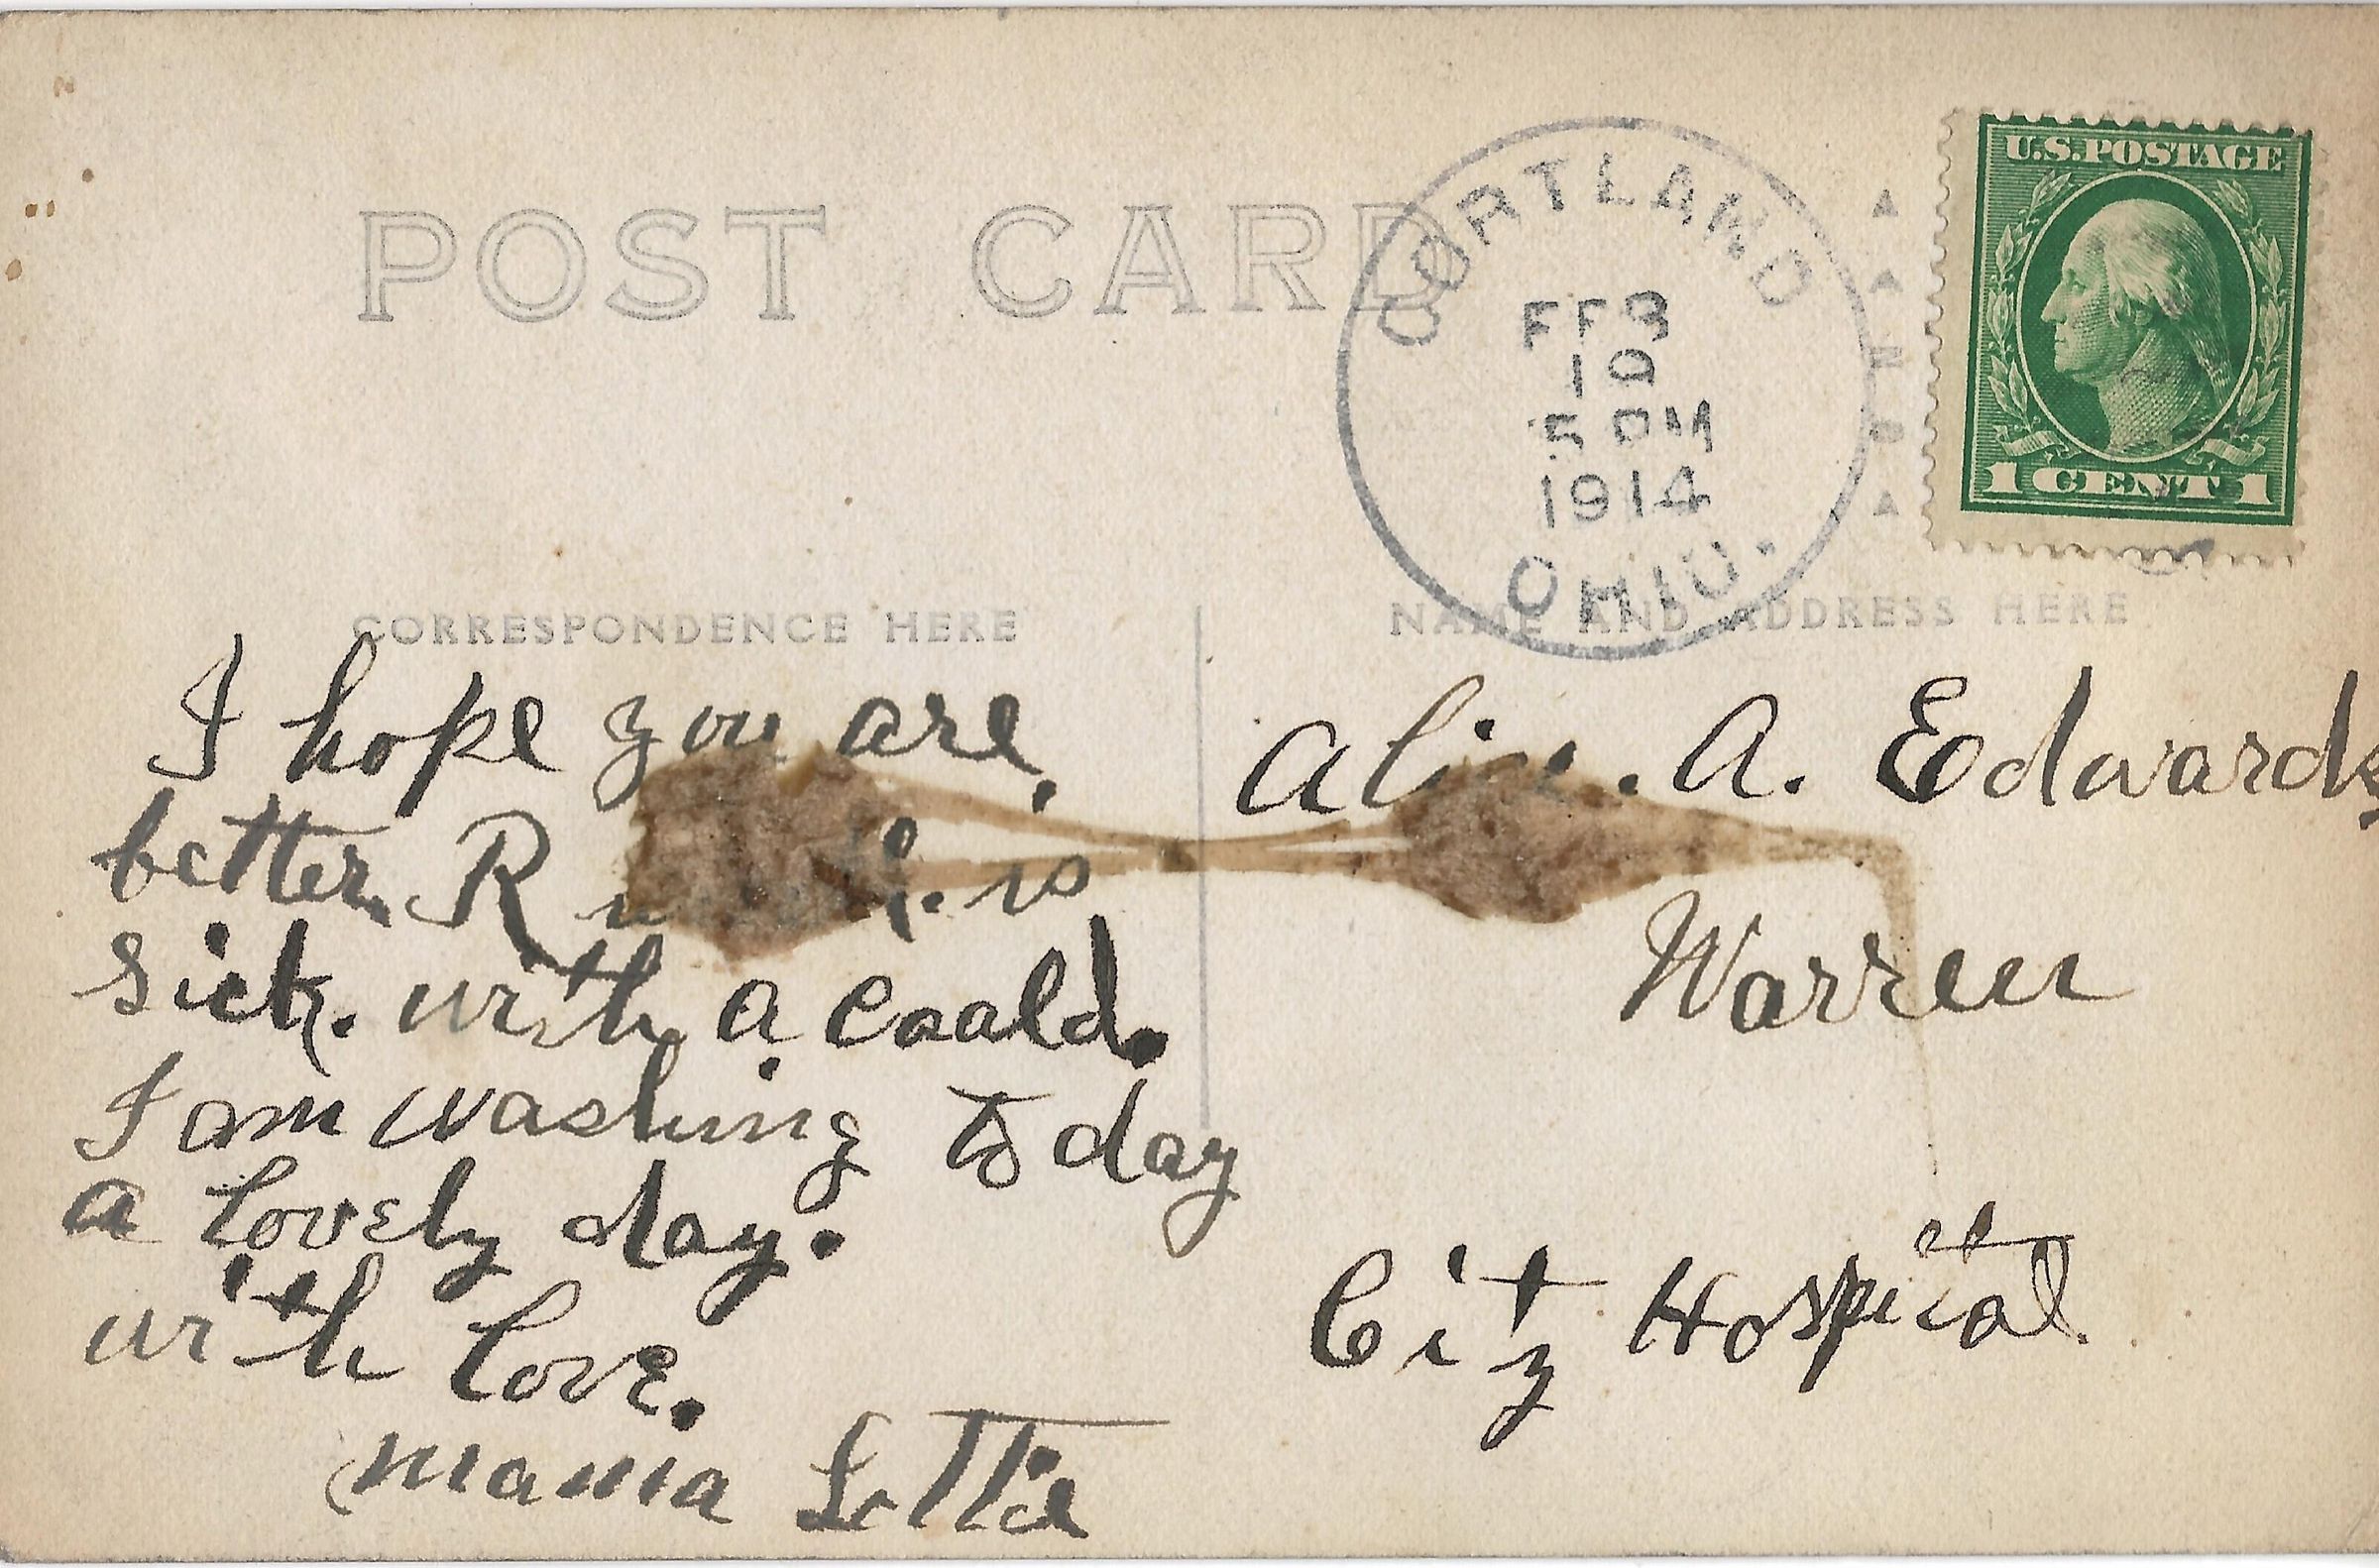 POST CARD
CORTLAND
FEB
10
5 PM
1914
OHIO.
U.S. POSTAGE
1 CENT 1
CORRESPONDENCE HERE
NAME AND ADDRESS HERE
I hope you are
better. is
sick. with a coald.
I am washing to day
a lovely day.
with love.
mama Lottie
A. Edwards
Warren
City Hospital